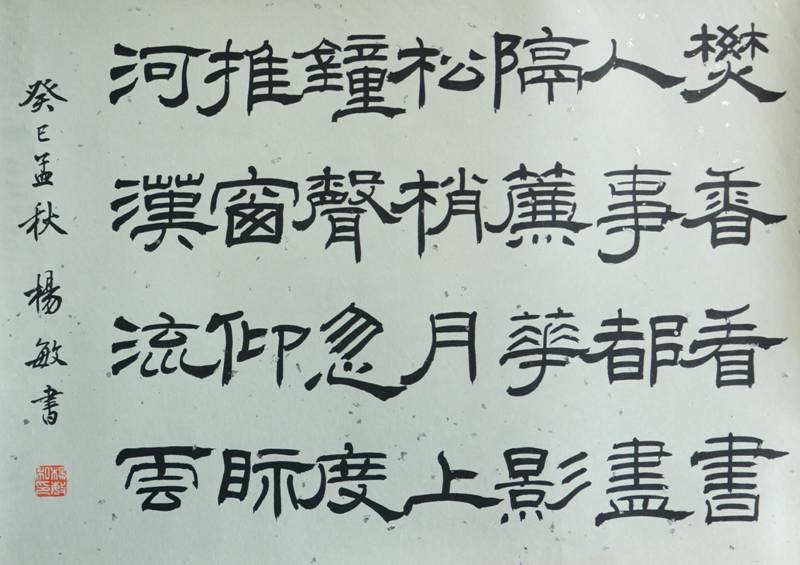 燓香看書
人事都盡
隔薕華影
松梢月上
鐘聲忽度
推窗仰眎
河漢流雲
癸巳孟秋 楊敏書